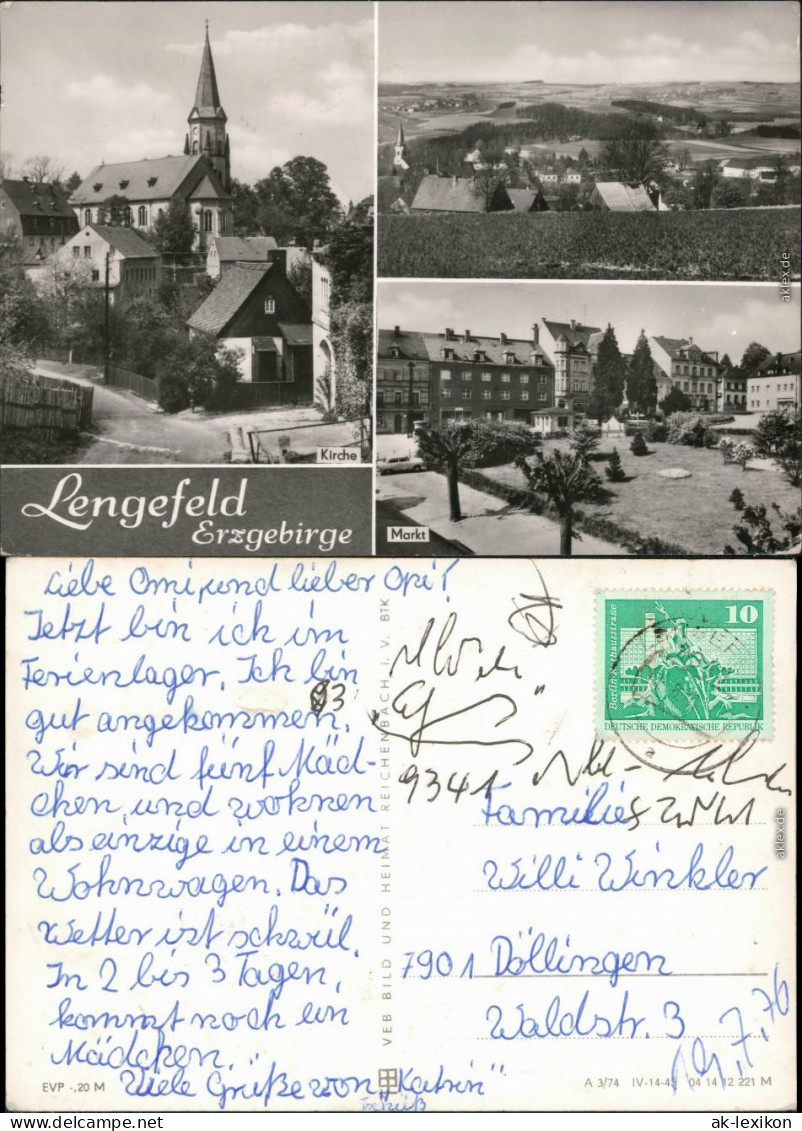 Kirche
Lengefeld
Erzgebirge
Markt
aklex.de
Liebe Omi, und lieber Opi!
Jetzt bin ich im
Ferienlager. Ich bin
gut angekommen.
Wir sind fünf Mäd-
chen, und wohnen
als einzige in einem
Wohnwagen. Das
Wetter ist schwül.
In 2 bis 3 Tagen,
kommt noch ein
Mädchen.
Viele Grüße von "Katrin"
VEB BILD UND HEIMAT REICHENBACH I. V. BTK
Berlin-Rathausstraße
10
DEUTSCHE DEMOKRATISCHE REPUBLIK
a
9341
Familie
Willi Winkler
7901 Döllingen
Waldstr. 3
19.7.76
EVP -,20 M
A 3/74 IV-14-45 04 14 12 221 M
aklex.de
www.ak-lexikon.de
ak-lexikon.com